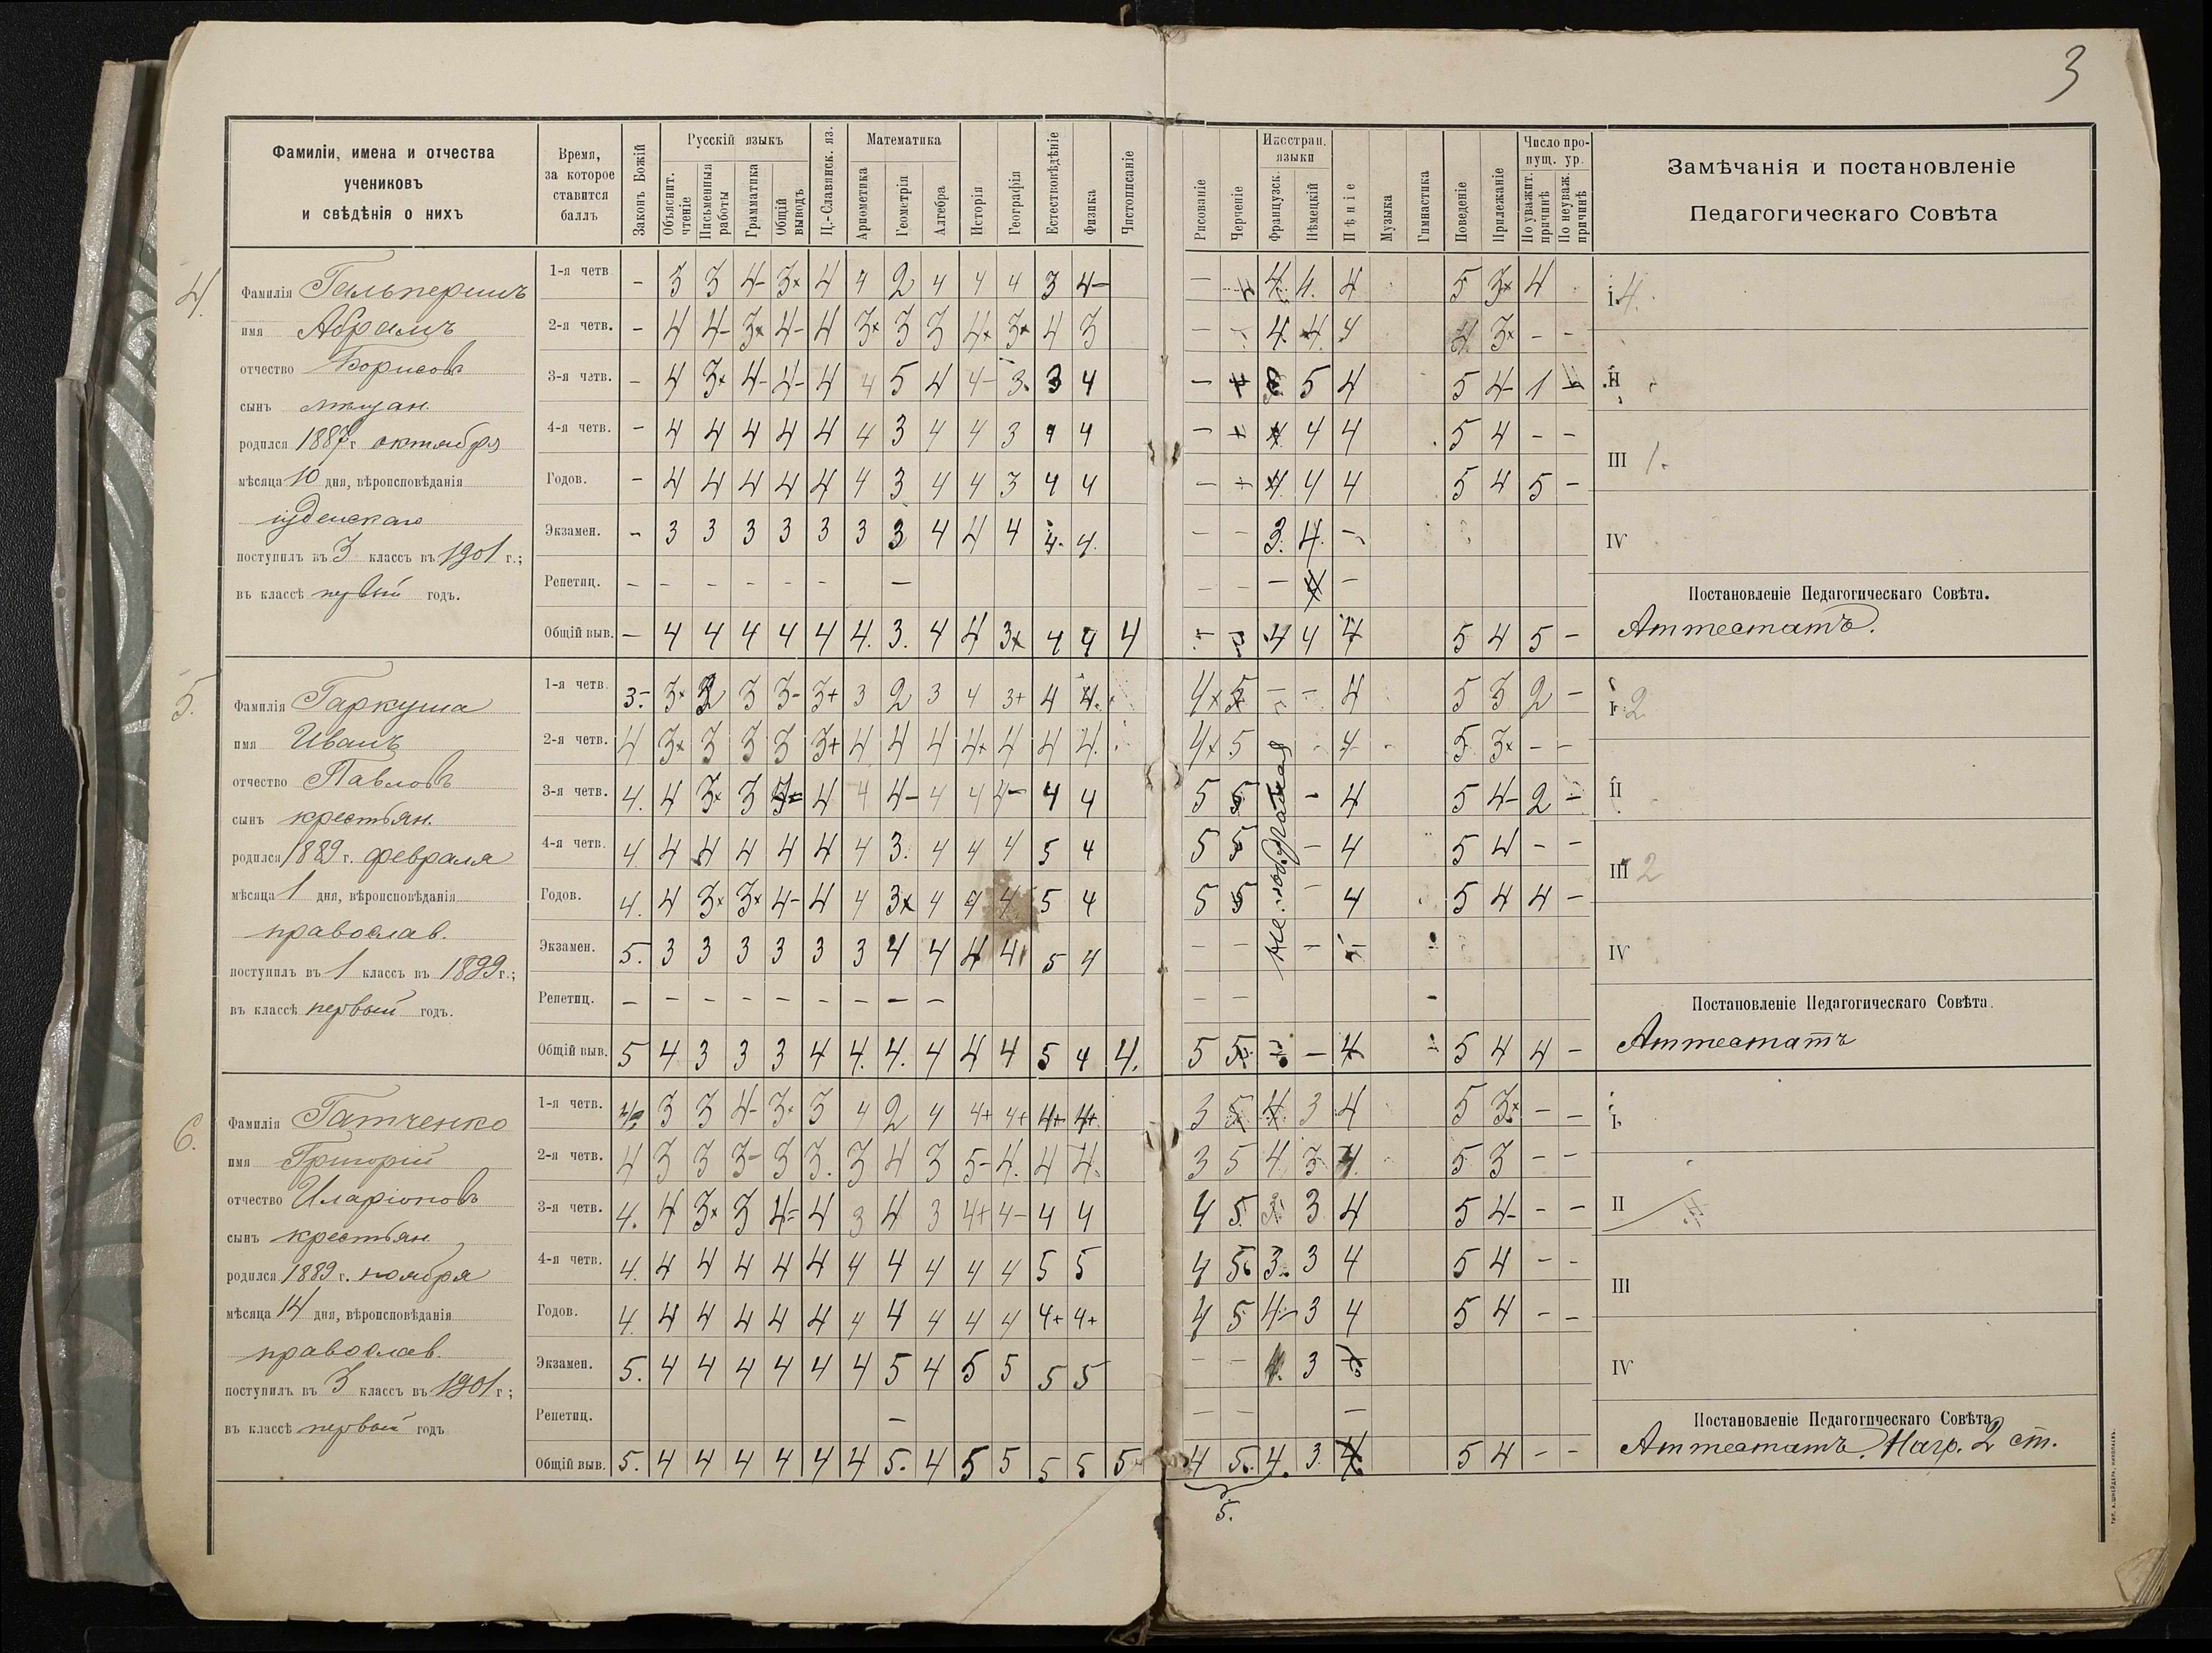 3
Фамиліи, имена и отчества
учениковъ
и свѣдѣнія о нихъ
Время,
за которое
ставится
баллъ
Законъ Божій
Русскій языкъ
Объяснит. чтеніе
Письменныя работы
Грамматика
Общій выводъ
Ц.-Славянск. яз.
Математика
Ариѳметика
Геометрія
Алгебра
Исторія
Географія
Естествовѣдѣніе
Физика
Чистописаніе
Рисованіе
Черченіе
Иностран. языки
Французск.
Нѣмецкій
Пѣніе
Музыка
Гимнастика
Поведеніе
Прилежаніе
Число пропущ. ур.
По уважит. причинѣ
По неуваж. причинѣ
Замѣчанія и постановленіе
Педагогическаго Совѣта
4.
Фамилія Гальперинъ
имя Абрамъ
отчество Борисовъ
сынъ мѣщан.
родился 1887 г. октября
мѣсяца 10 дня, вѣроисповѣданія
іудейскаго
поступилъ въ 3 классъ въ 1901 г.;
въ классѣ первый годъ.
1-я четв. – 3 3 4- 3× 4 4 2 4 4 4 3 4- – 4 4. 4 5 3× 4
2-я четв. – 4 4- 3× 4- 4 3× 3 3 4× 3× 4 3 – – 4 4. 4 4 3× – –
3-я четв. – 4 3× 4- 4- 4 4 5 4 4- 3 3 4 – 5 4 5 4- 1
4-я четв. – 4 4 4 4 4 4 3 4 4 3 4 4 – 4 4 4 5 4 – –
Годов. – 4 4 4 4 4 4 3 4 4 3 4 4 – – 4 4 4 5 4 5 –
Экзамен. – 3 3 3 3 3 3 3 4 4 4 4. 4. – – 3. 4. –
Репетиц. – – – – – – – – – – –
Общій выв. – 4 4 4 4 4 4. 3. 4 4 3× 4 4 4 – – 4 4 4 5 4 5 –
I 4.
II
III 1.
IV
Постановленіе Педагогическаго Совѣта.
Аттестатъ.
5.
Фамилія Гаркуша
имя Иванъ
отчество Павловъ
сынъ крестьян.
родился 1889 г. февраля
мѣсяца 1 дня, вѣроисповѣданія
православ.
поступилъ въ 1 классъ въ 1899 г.;
въ классѣ первый годъ.
1-я четв. 3- 3× 2 3 3- 3+ 3 2 3 4 3+ 4 4. 4× 5 – – 4 5 3 2 –
2-я четв. 4 3× 3 3 3 3+ 4 4 4 4× 4 4 4. 4× 5 4 5 3× – –
3-я четв. 4. 4 3× 3 3= 4 4 4- 4 4 4- 4 4 5 5 – 4 5 4- 2 –
4-я четв. 4 4 4 4 4 4 4 3. 4 4 4 5 4 5 5 – 4 5 4 – –
Годов. 4. 4 3× 3× 4- 4 4 3× 4 4 4 5 4 5 5 – 4 5 4 4 –
Экзамен. 5. 3 3 3 3 3 3 4 4 4 4 5 4 – – – –
Репетиц. – – – – – – – – – – – –
Общій выв. 5 4 3 3 3 4 4. 4. 4 4 4 5 4 4. 5 5 – – 4 5 4 4 –
I 2
II
III 2
IV
Постановленіе Педагогическаго Совѣта.
Аттестатъ
6.
Фамилія Гатченко
имя Григорій
отчество Иларіоновъ
сынъ крестьян.
родился 1889 г. ноября
мѣсяца 14 дня, вѣроисповѣданія
православ.
поступилъ въ 3 классъ въ 1901 г.;
въ классѣ первый годъ
1-я четв. 3 3 4- 3× 3 4 2 4 4+ 4+ 4+ 4+ 3 5 4 3 4 5 3× – –
2-я четв. 4 3 3 3- 3 3. 3 4 3 5- 4. 4 4 3 5 4 3 4 5 3 – –
3-я четв. 4. 4 3× 3 4= 4 3 4 3 4+ 4- 4 4 4 5 3 3 4 5 4- – –
4-я четв. 4. 4 4 4 4 4 4 4 4 4 4 5 5 4 5 3. 3 4 5 4 – –
Годов. 4. 4 4 4 4 4 4 4 4 4 4 4+ 4+ 4 5 4- 3 4 5 4 – –
Экзамен. 5. 4 4 4 4 4 4 5 4 5 5 5 5 – – 4. 3
Репетиц. – – – –
Общій выв. 5. 4 4 4 4 4 4 5. 4 5 5 5 5 5 4 5. 4. 3. 4 5 4 – –
5.
I
II
III
IV
Постановленіе Педагогическаго Совѣта
Аттестатъ. Нагр. 2 ст.